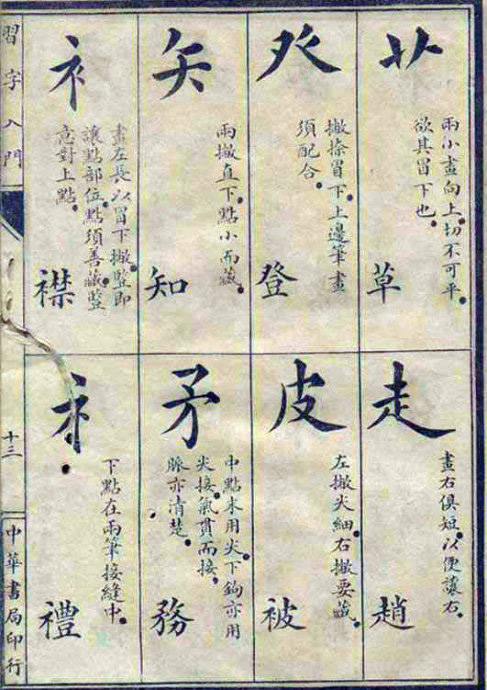 艹
兩小畫向上。切不可平。
欲其冒下也。
草
癶
撇捺冒下。上邊筆畫
須配合。
登
矢
兩撇直下。點小而藏。
知
衤
畫左長。以冒下。撇竪即
讓點部位。點須善藏。竪
意對上點。
襟
走
畫右俱短。以便讓右。
趙
皮
左撇尖細。右撇要藏。
被
矛
中點末用尖。下鉤亦用
尖接。氣貫而接。
脈亦清楚。
務
礻
下點在兩筆接縫中。
禮
習字入門
十三
中華書局印行